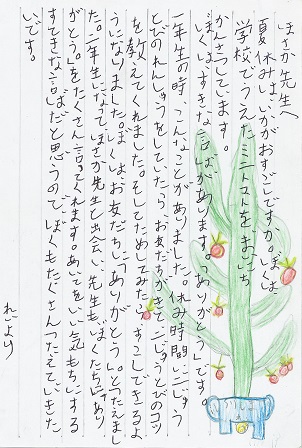 ほさか先生へ
夏休みは、いかがおすごしですか。ぼくは、
学校でうえたミニトマトを、まいにち
かんさつしています。
ぼくは、すきな言ばがあります。「ありがとう」です。
一年生の時、こんなことがありました。休み時間に二じゅう
とびのれんしゅうをしていたら、お友だちがきて二じゅうとびのコツ
を教えてくれました。そしてためしてみたら、すこしできるよ
うになりました。ぼくは、お友だちに「ありがとう。」とつたえまし
た。二年生になってほさか先生と出会い、先生もぼくたちに「あり
がとう。」をたくさん言ってくれます。あいてをいい気もちにする
すてきな言ばだと思うので、ぼくもたくさんつたえていきた
いです。
れいより